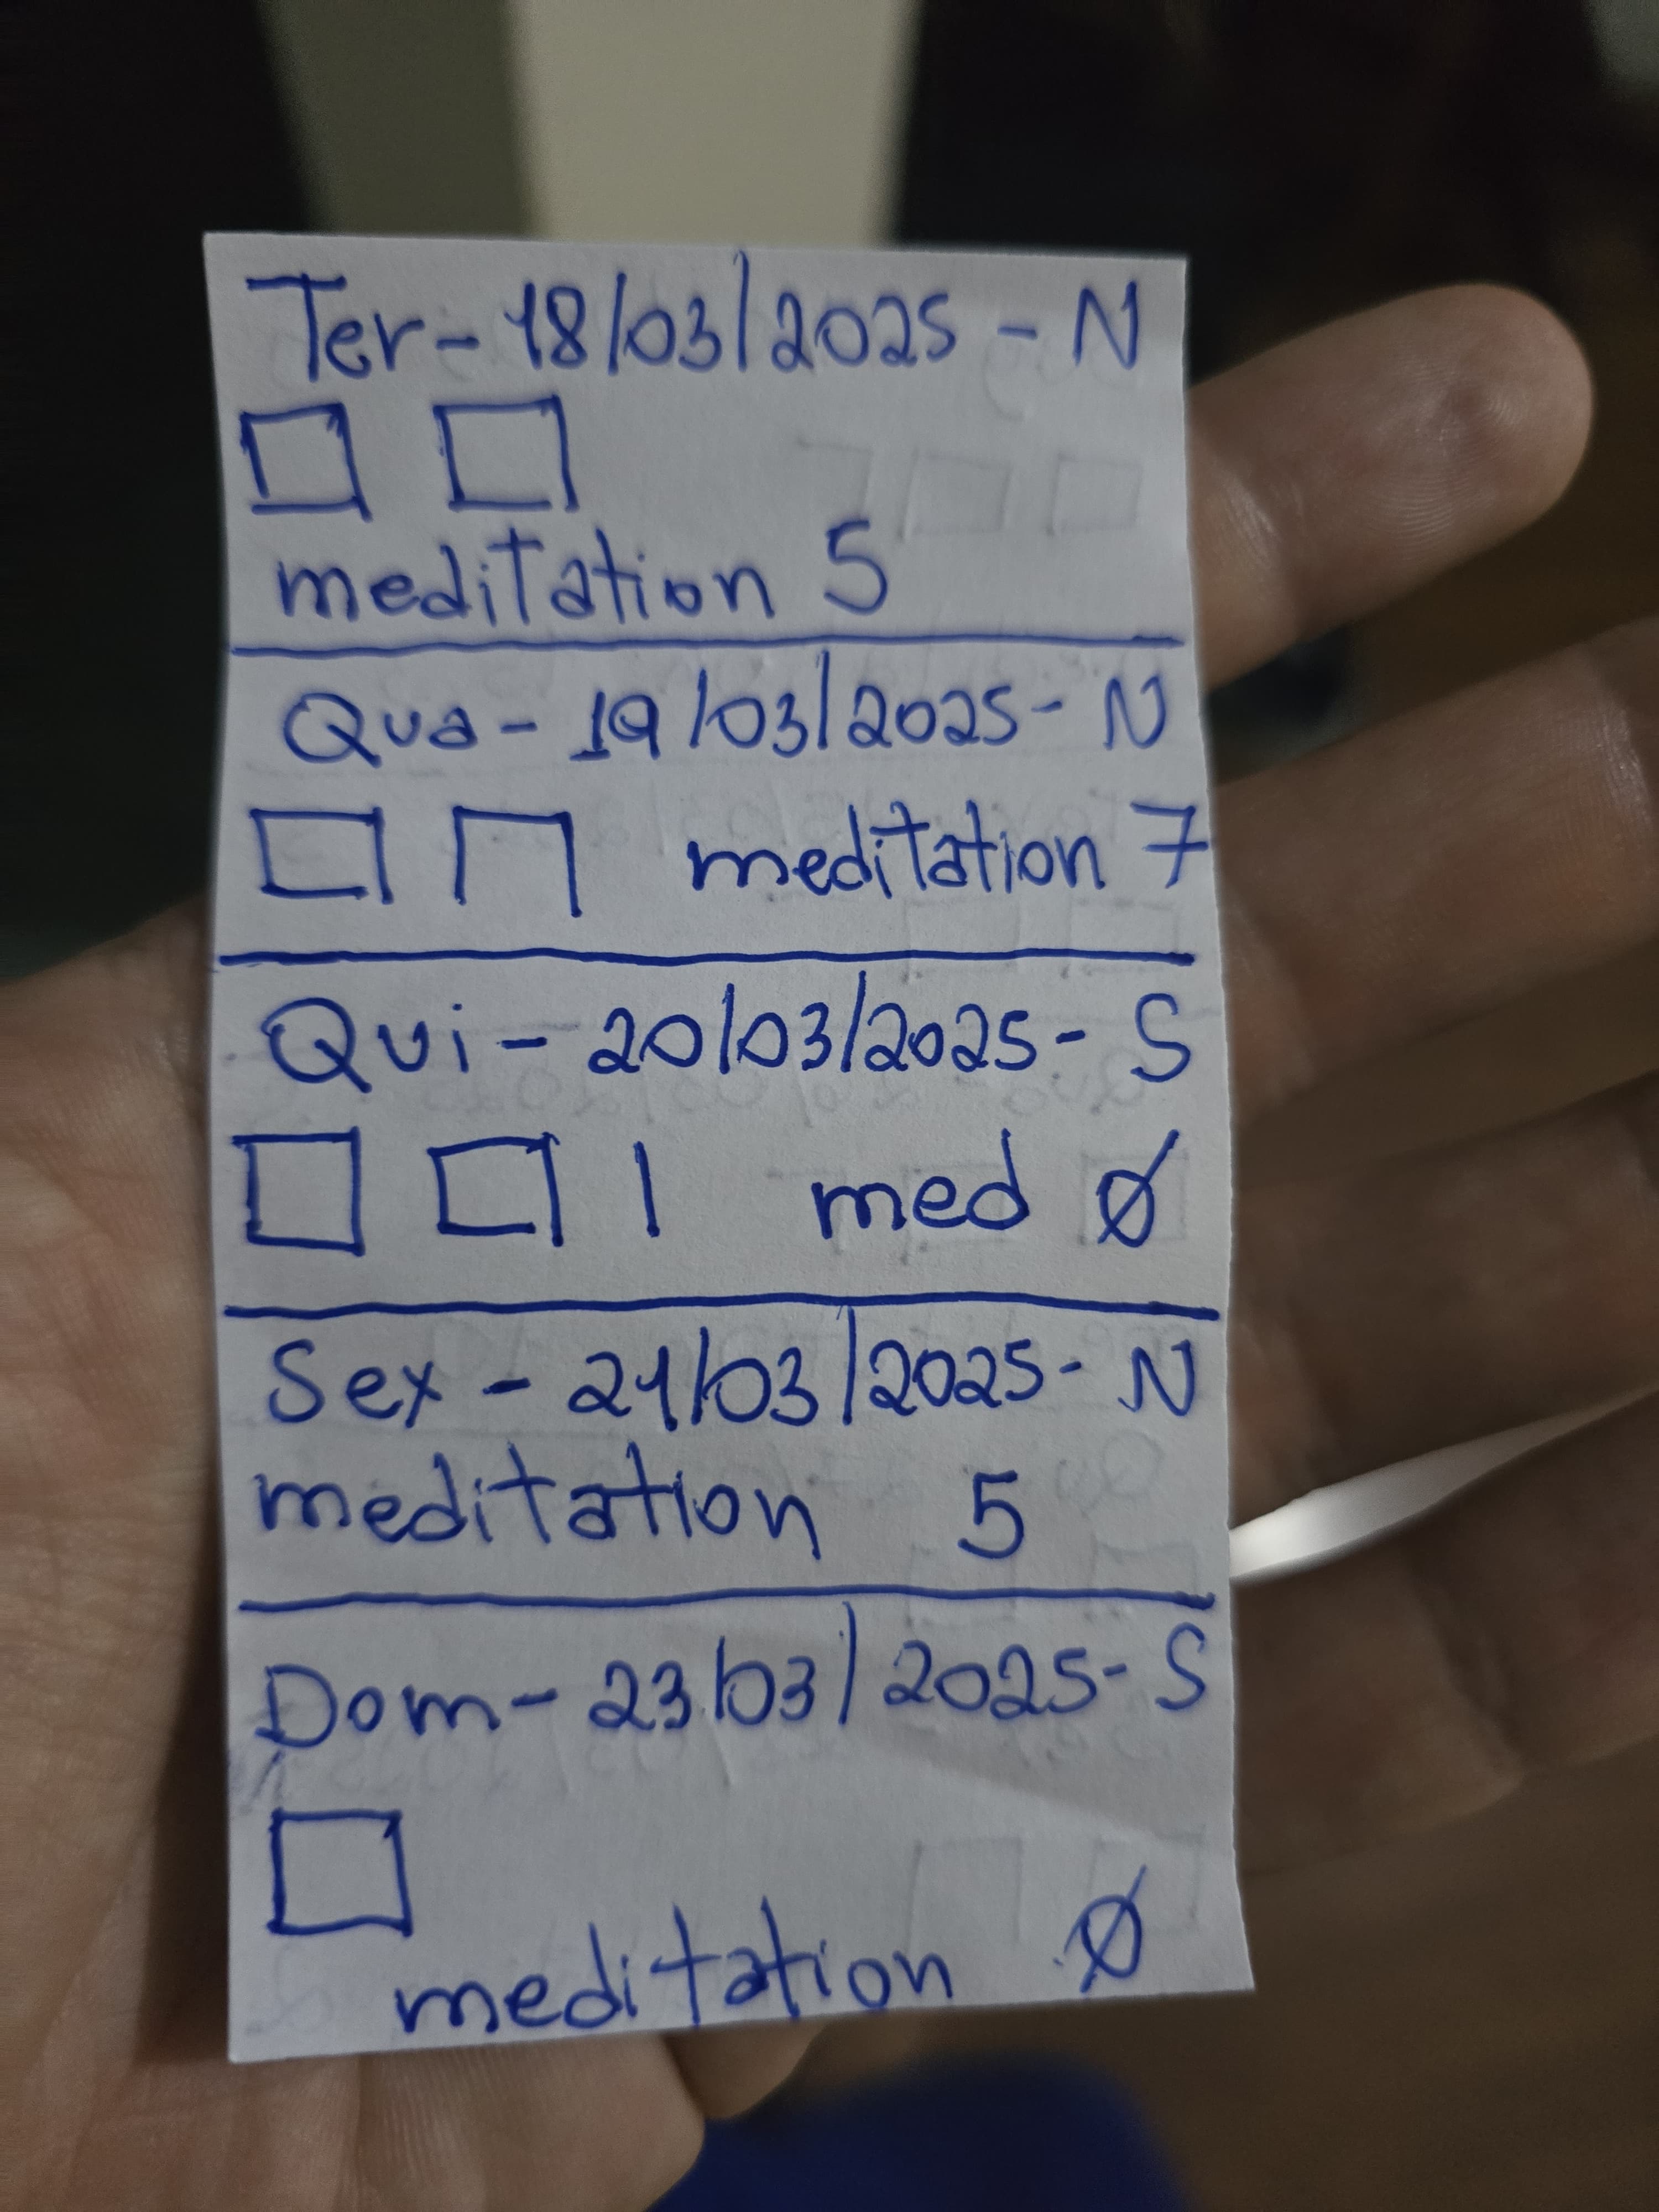 Ter - 18/03/2025 - N
meditation 5
Qua - 19/03/2025 - N
meditation 7
Qui - 20/03/2025 - S
med Ø
Sex - 21/03/2025 - N
meditation 5
Dom - 23/03/2025 - S
meditation Ø